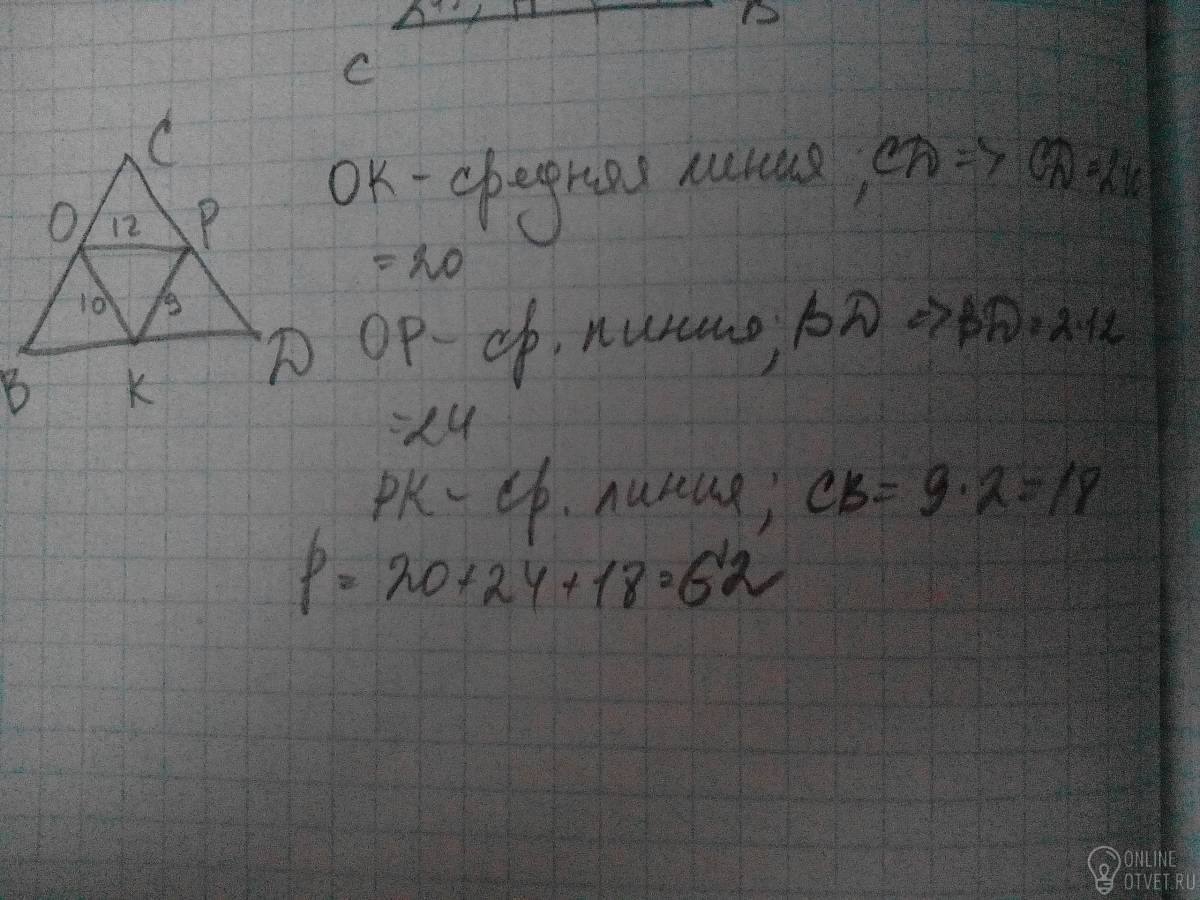 B
C
C
O 12 P
10 9
B K D
OK - средняя линия ; CD => CD = 2·10
= 20
OP - ср. линия; BD => BD = 2·12
= 24
PK - ср. линия; CB = 9·2 = 18
P = 20 + 24 + 18 = 62
ONLINE
OTVET.RU